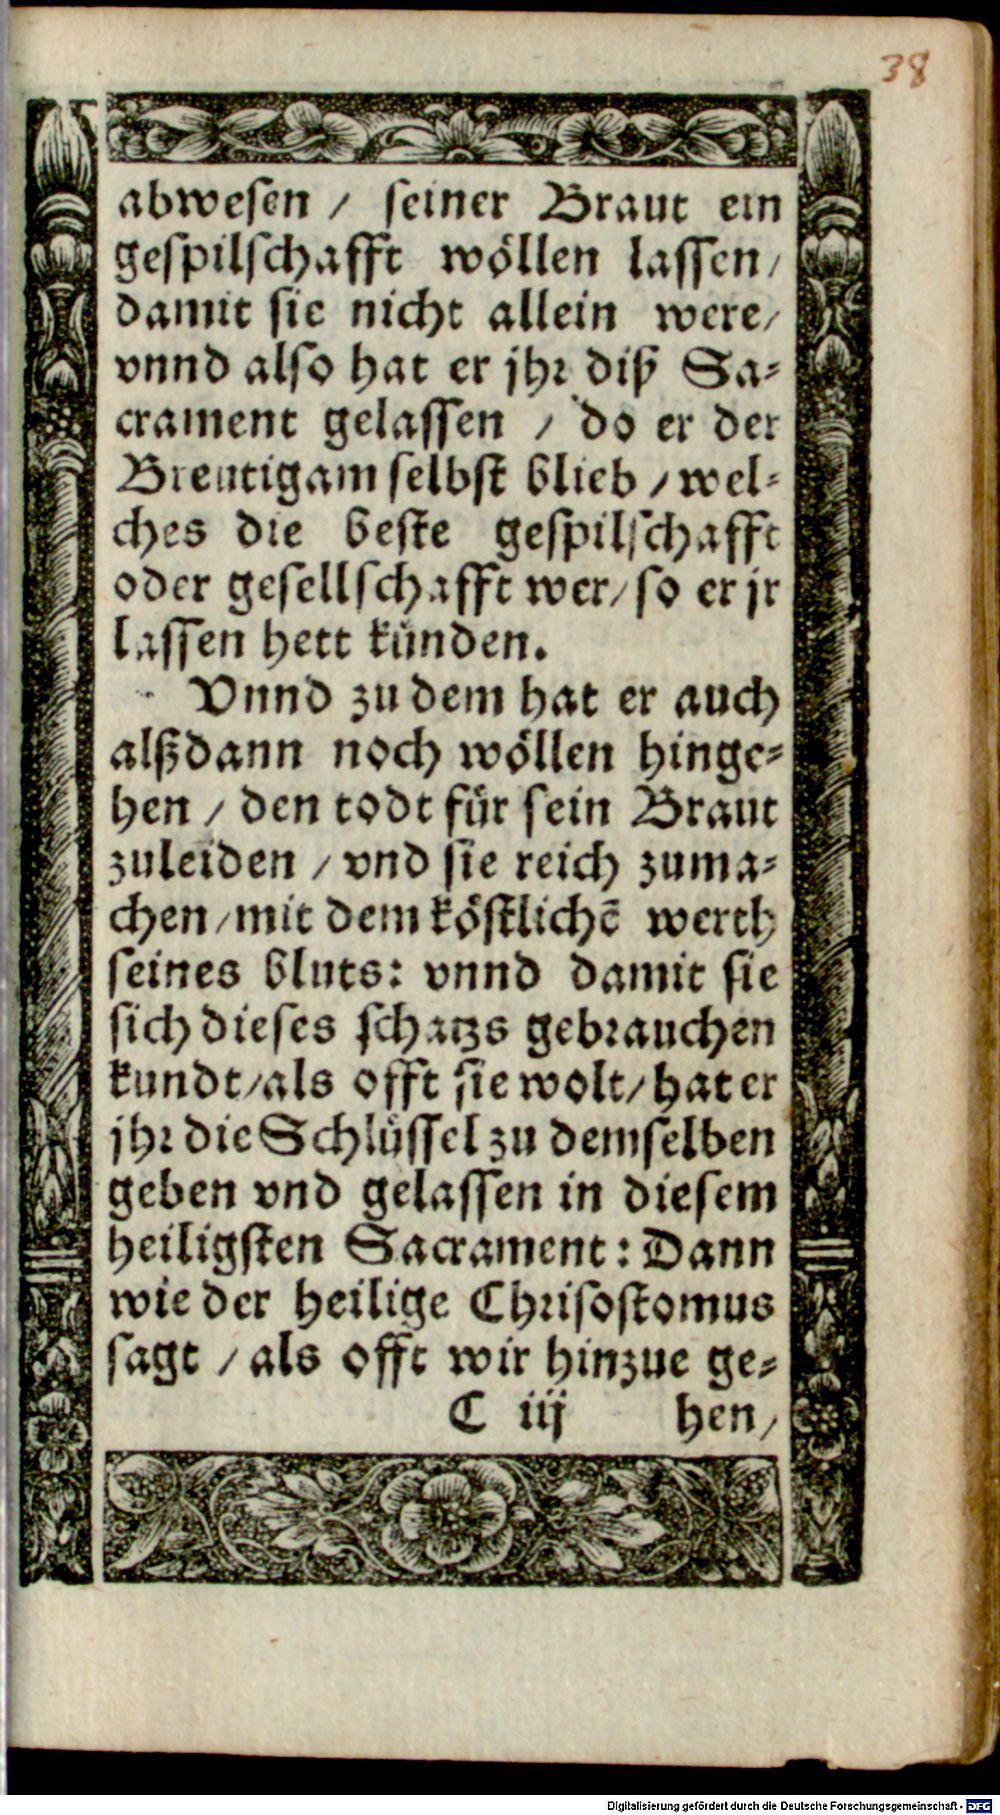 38
abwesen / seiner Braut ein
gespilschafft wöllen lassen /
damit sie nicht allein were /
vnnd also hat er jhr diß Sa-
crament gelassen / do er der
Breutigam selbst blieb / wel-
ches die beste gespilschafft
oder gesellschafft wer / so er jr
lassen hett künden.
Vnnd zu dem hat er auch
alßdann noch wöllen hinge-
hen / den todt für sein Braut
zuleiden / vnd sie reich zuma-
chen / mit dem köstlichē werth
seines bluts: vnnd damit sie
sich dieses schatzs gebrauchen
kundt / als offt sie wolt / hat er
jhr die Schlüssel zu demselben
geben vnd gelassen in diesem
heiligsten Sacrament: Dann
wie der heilige Chrisostomus
sagt / als offt wir hinzue ge-
C iij hen /
Digitalisierung gefördert durch die Deutsche Forschungsgemeinschaft - DFG